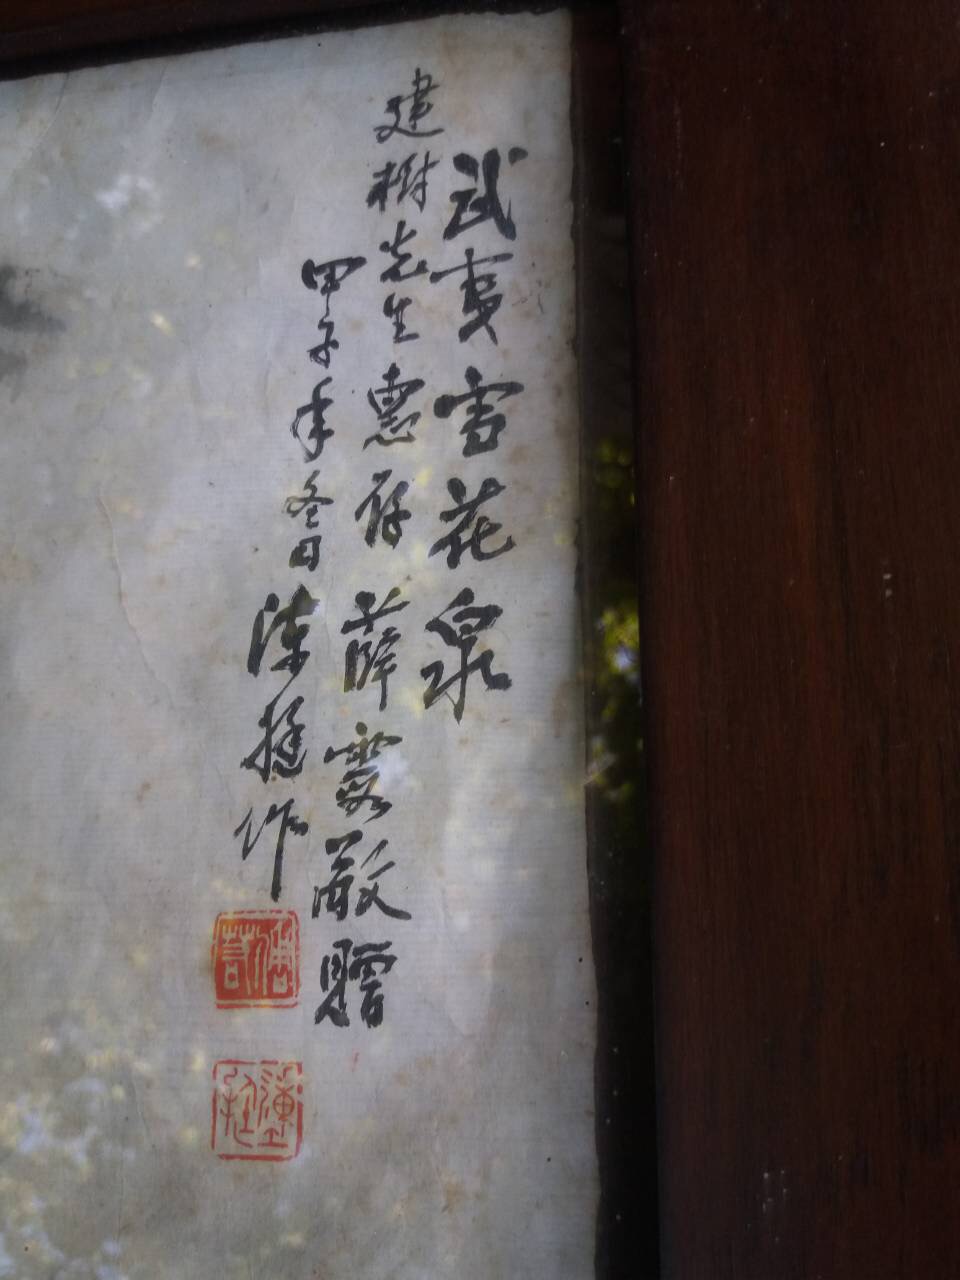 武夷雪花泉
建樹先生惠存 薛霞敬贈
甲子年冬日 陳挺作